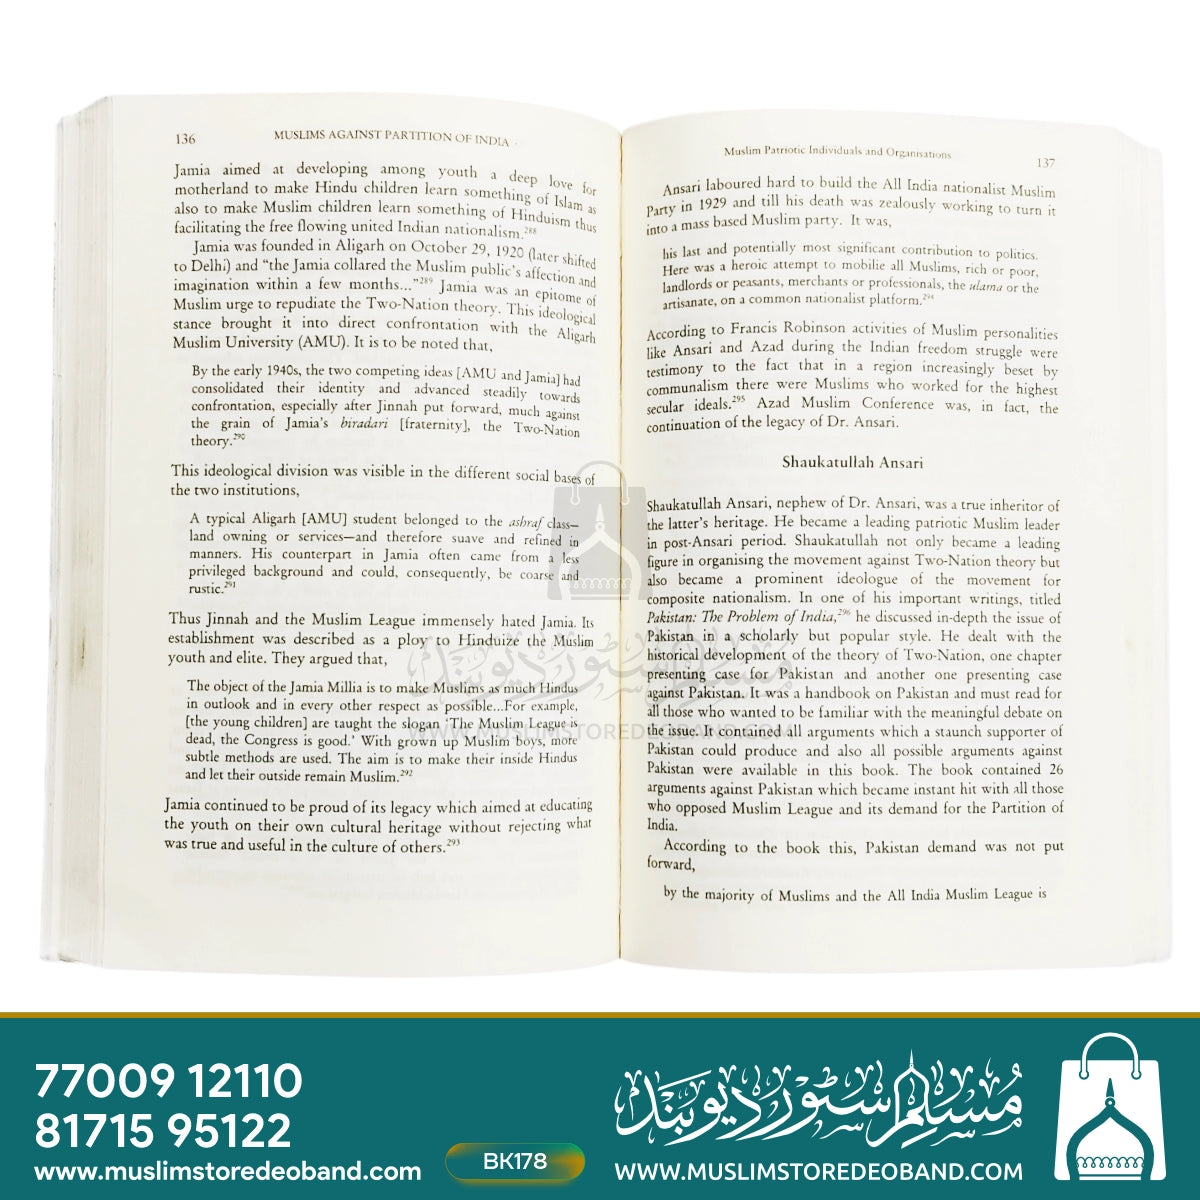 136
MUSLIMS AGAINST PARTITION OF INDIA
Jamia aimed at developing among youth a deep love for
motherland to make Hindu children learn something of Islam as
also to make Muslim children learn something of Hinduism thus
facilitating the free flowing united Indian nationalism.288
Jamia was founded in Aligarh on October 29, 1920 (later shifted
to Delhi) and “the Jamia collared the Muslim public's affection and
imagination within a few months...”289 Jamia was an epitome of
Muslim urge to repudiate the Two-Nation theory. This ideological
stance brought it into direct confrontation with the Aligarh
Muslim University (AMU). It is to be noted that,
By the early 1940s, the two competing ideas [AMU and Jamia] had
consolidated their identity and advanced steadily towards
confrontation, especially after Jinnah put forward, much against
the grain of Jamia's biradari [fraternity], the Two-Nation
theory.290
This ideological division was visible in the different social bases of
the two institutions,
A typical Aligarh [AMU] student belonged to the ashraf class—
land owning or services—and therefore suave and refined in
manners. His counterpart in Jamia often came from a less
privileged background and could, consequently, be coarse and
rustic.291
Thus Jinnah and the Muslim League immensely hated Jamia. Its
establishment was described as a ploy to Hinduize the Muslim
youth and elite. They argued that,
The object of the Jamia Millia is to make Muslims as much Hindus
in outlook and in every other respect as possible...For example,
[the young children] are taught the slogan ‘The Muslim League is
dead, the Congress is good.’ With grown up Muslim boys, more
subtle methods are used. The aim is to make their inside Hindus
and let their outside remain Muslim.292
Jamia continued to be proud of its legacy which aimed at educating
the youth on their own cultural heritage without rejecting what
was true and useful in the culture of others.293
Muslim Patriotic Individuals and Organisations
137
Ansari laboured hard to build the All India nationalist Muslim
Party in 1929 and till his death was zealously working to turn it
into a mass based Muslim party. It was,
his last and potentially most significant contribution to politics.
Here was a heroic attempt to mobilie all Muslims, rich or poor,
landlords or peasants, merchants or professionals, the ulama or the
artisanate, on a common nationalist platform.294
According to Francis Robinson activities of Muslim personalities
like Ansari and Azad during the Indian freedom struggle were
testimony to the fact that in a region increasingly beset by
communalism there were Muslims who worked for the highest
secular ideals.295 Azad Muslim Conference was, in fact, the
continuation of the legacy of Dr. Ansari.
Shaukatullah Ansari
Shaukatullah Ansari, nephew of Dr. Ansari, was a true inheritor of
the latter's heritage. He became a leading patriotic Muslim leader
in post-Ansari period. Shaukatullah not only became a leading
figure in organising the movement against Two-Nation theory but
also became a prominent ideologue of the movement for
composite nationalism. In one of his important writings, titled
Pakistan: The Problem of India,296 he discussed in-depth the issue of
Pakistan in a scholarly but popular style. He dealt with the
historical development of the theory of Two-Nation, one chapter
presenting case for Pakistan and another one presenting case
against Pakistan. It was a handbook on Pakistan and must read for
all those who wanted to be familiar with the meaningful debate on
the issue. It contained all arguments which a staunch supporter of
Pakistan could produce and also all possible arguments against
Pakistan were available in this book. The book contained 26
arguments against Pakistan which became instant hit with all those
who opposed Muslim League and its demand for the Partition of
India.
According to the book this, Pakistan demand was not put
forward,
by the majority of Muslims and the All India Muslim League is
مسلم سٹور دیوبند
WWW.MUSLIMSTOREDEOBAND.COM
77009 12110
81715 95122
www.muslimstoredeoband.com
BK178
مسلم سٹور دیوبند
WWW.MUSLIMSTOREDEOBAND.COM